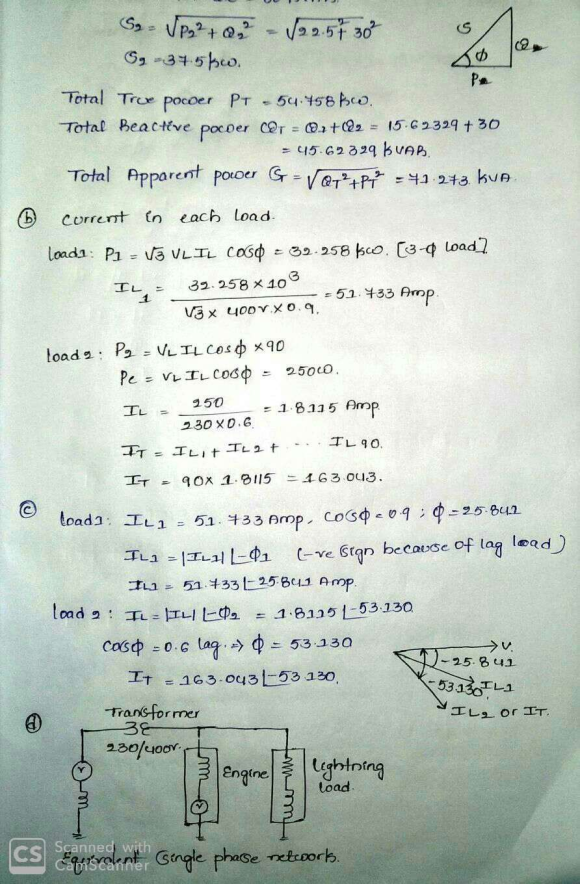 S2 = √P2² + Q2² = √22.5² + 30²
S2 = 37.5 kw.
S
φ
Q2
P2
Total True power PT = 54.758 kw.
Total Reactive power QT = Q1+Q2 = 15.62329 + 30
= 45.62329 kVAR.
Total Apparent power S = √QT²+PT² = 71.273 KVA
(b) current in each load.
load1: P1 = √3 VL IL cosφ = 32.258 kw. [3-φ load]
IL1 = 32.258 × 10³ / √3 × 400V. × 0.9. = 51.733 Amp.
load 2: P2 = VL IL cosφ × 90
Pe = VL IL cosφ = 250w.
IL = 250 / 230 × 0.6. = 1.8115 Amp
IT = IL1 + IL2 + ... IL90.
IT = 90 × 1.8115 = 163.043.
(c) load1: IL1 = 51.733 Amp, cosφ = 0.9 ; φ = 25.841
IL1 = |IL1| ∠-φ1 (-ve sign because of lag load)
IL1 = 51.733 ∠-25.841 Amp.
load 2: IL = |IL| ∠-φ2 = 1.8115 ∠-53.130
cosφ = 0.6 lag. ⇒ φ = 53.130
IT = 163.043 ∠-53.130.
V.
-25.841
-53.130
IL1
IL2 or IT.
(d) Transformer
230/400V.
V
Engine
Lightning
load.
Equivalent single phase network.
CS Scanned with
CamScanner